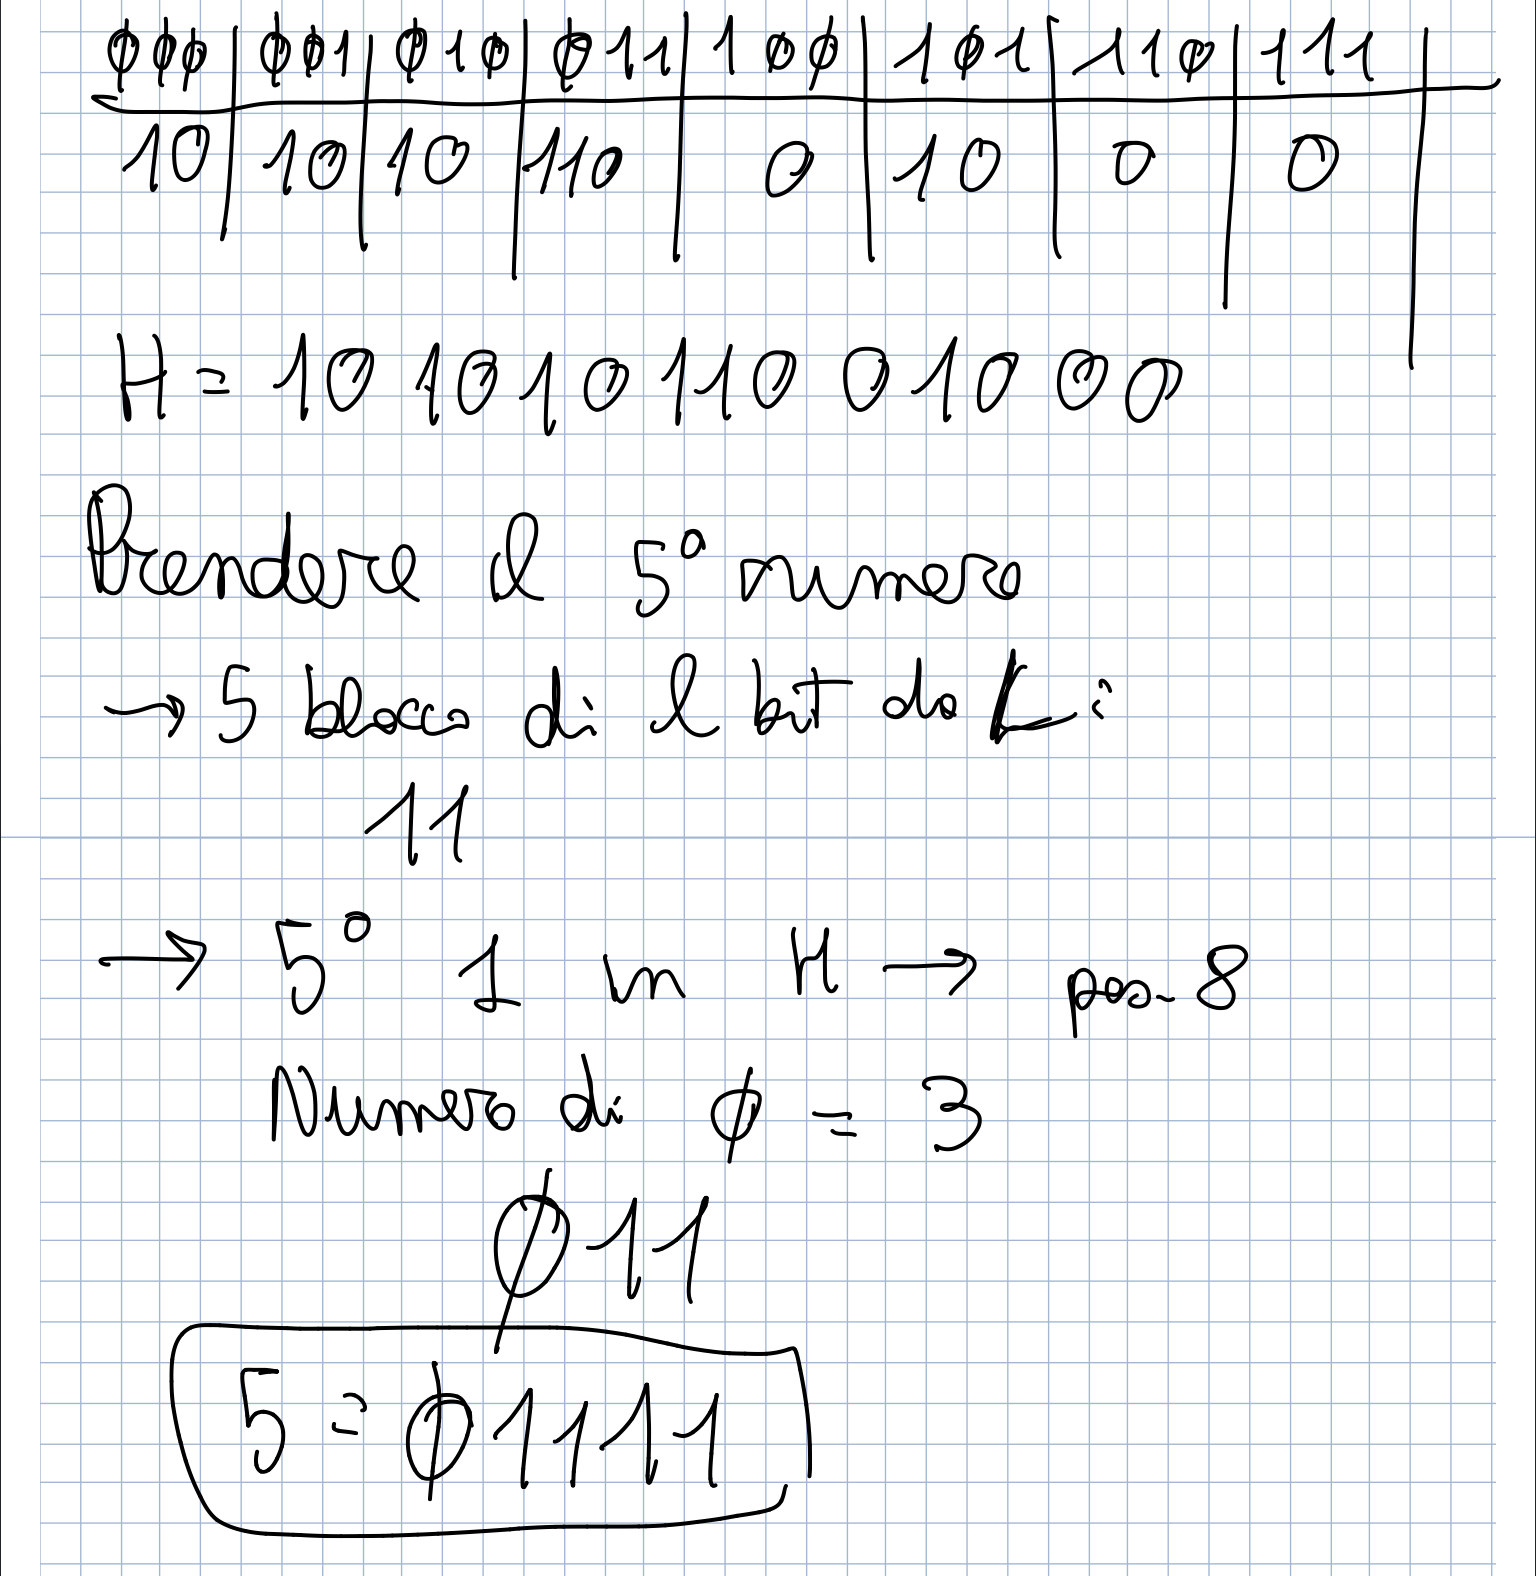 000 | 001 | 010 | 011 | 100 | 101 | 110 | 111
10 | 10 | 10 | 110 | 0 | 10 | 0 | 0
H = 10 10 10 110 0 10 0 0
Prendere il 5° numero
→ 5 blocco di l bit da L:
11
→ 5° 1 in H → pos. 8
Numero di 0 = 3
011
5 = 01111